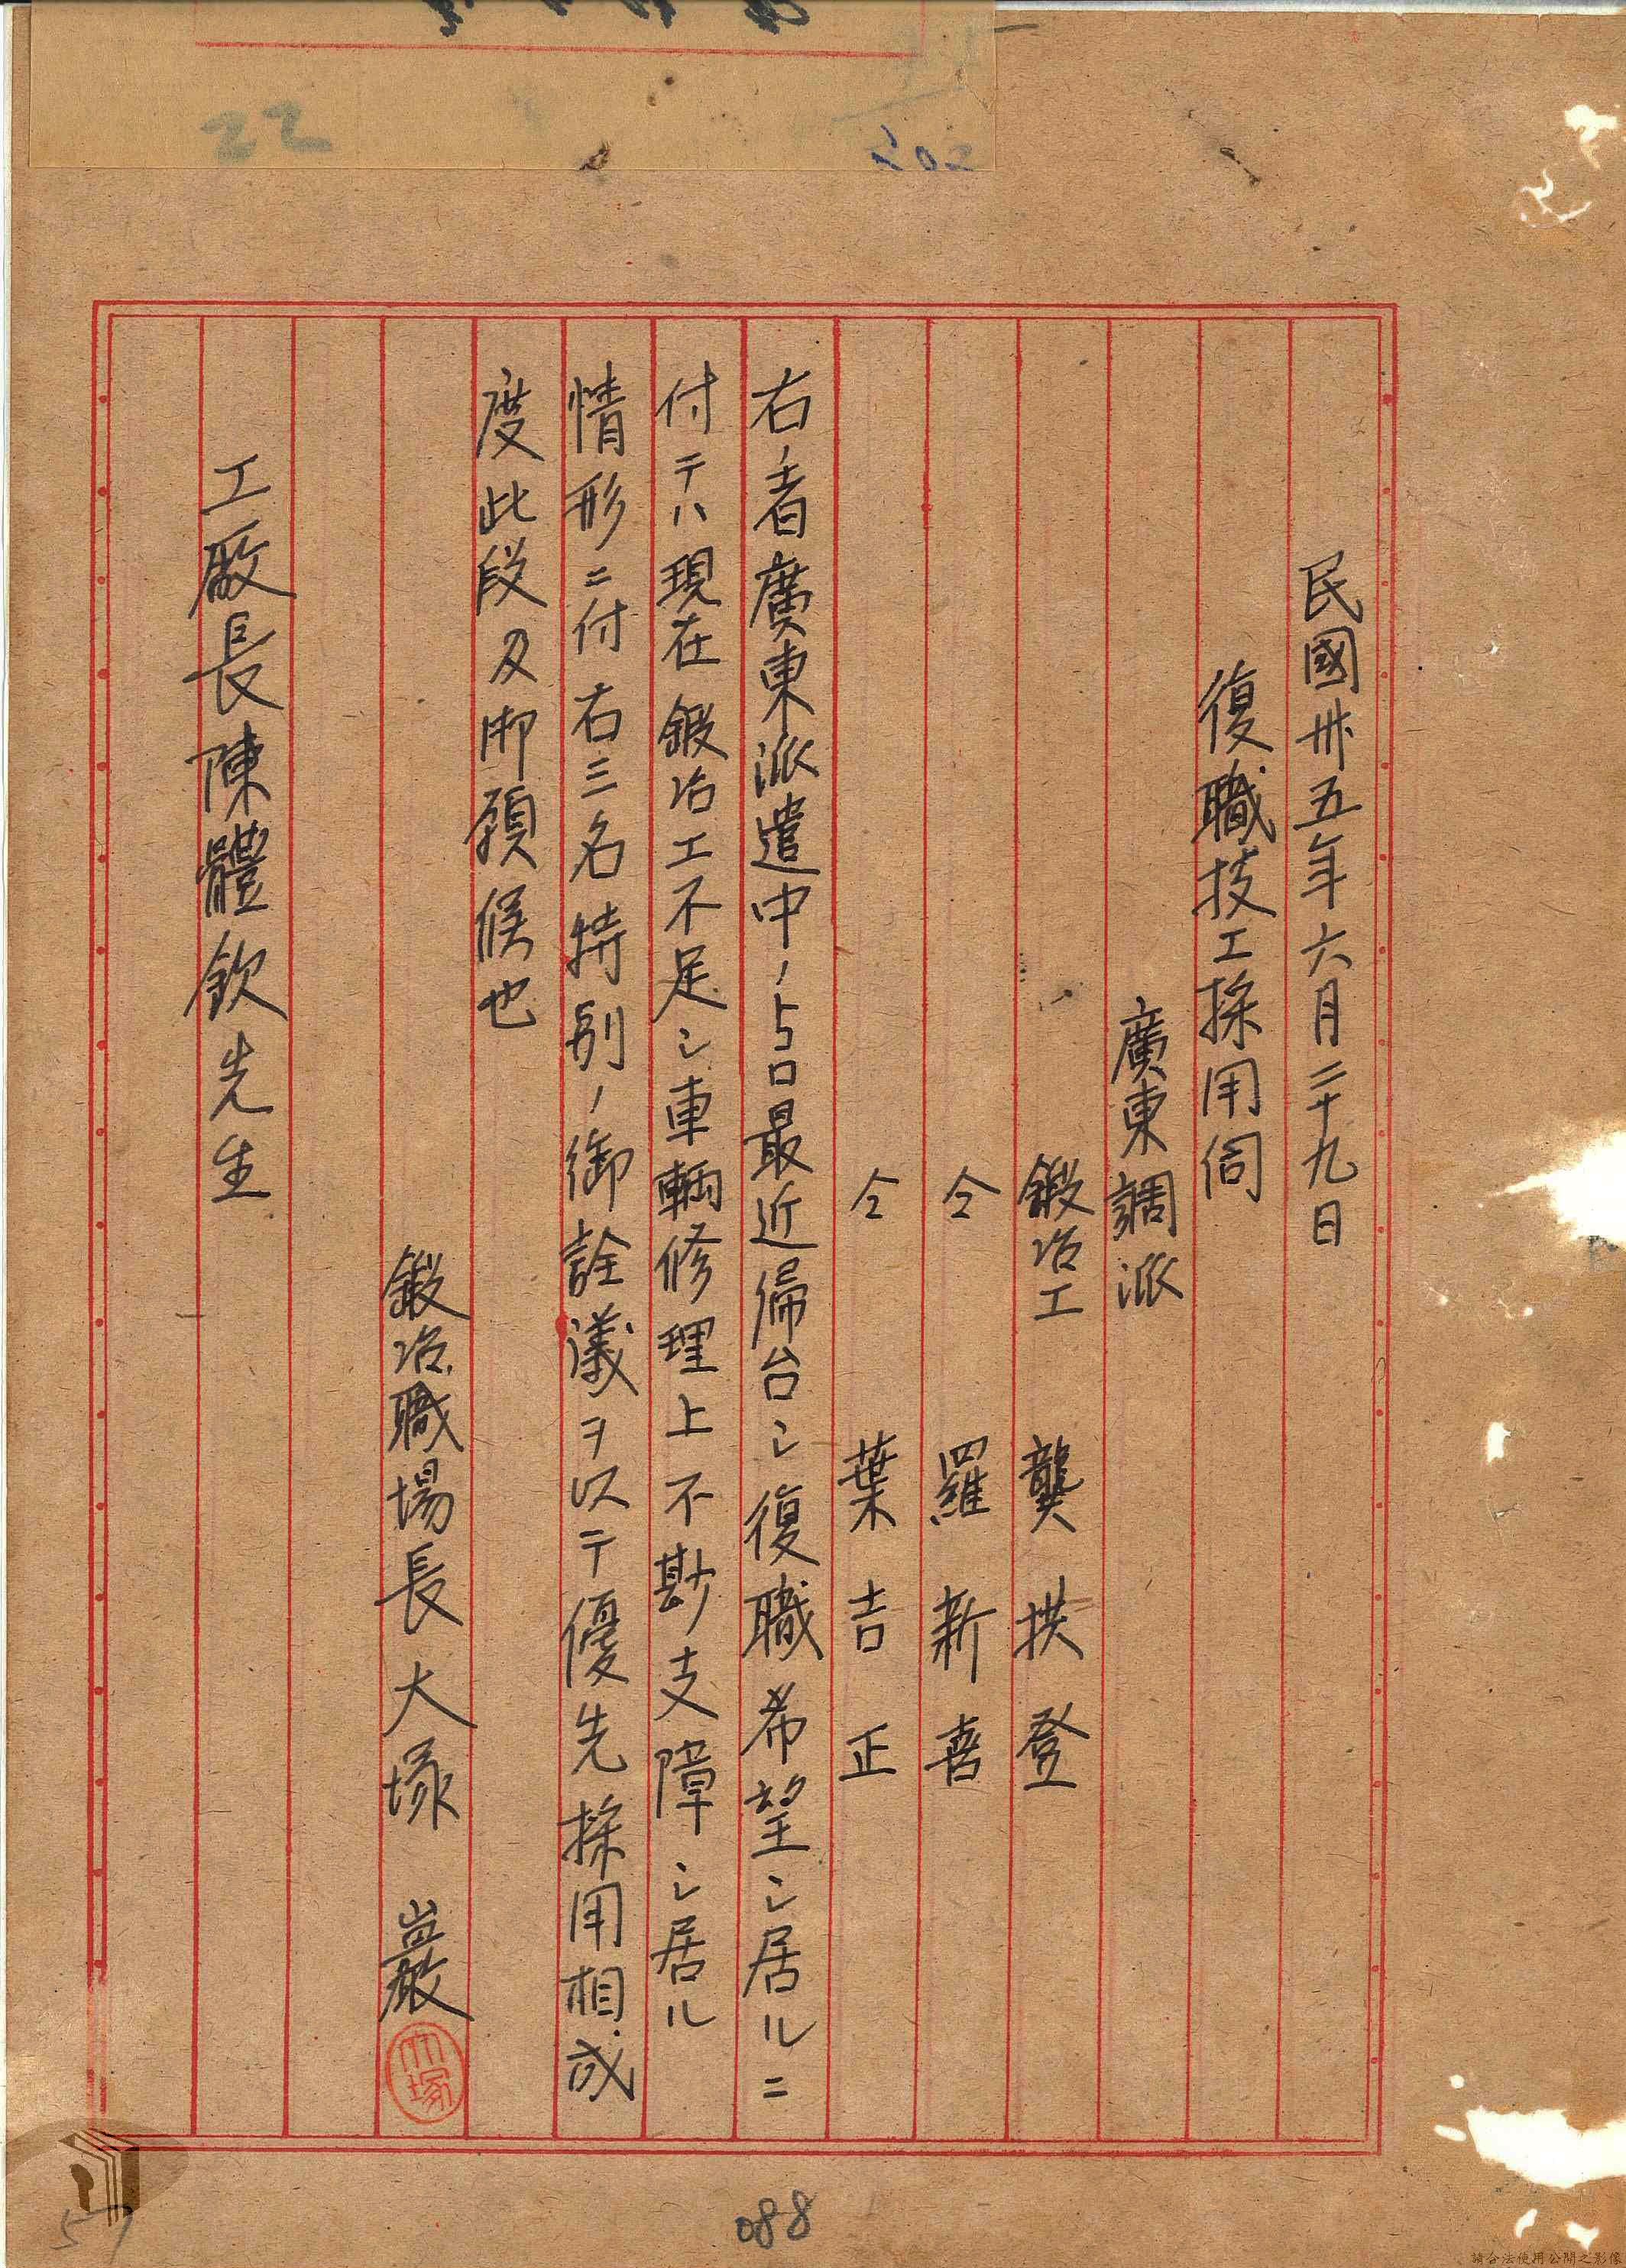 民國卅五年六月二十九日
復職技工採用伺
廣東調派
鍛冶工 龔拱登
仝 羅新喜
仝 葉吉正
右ノ者廣東派遣中ノ所最近帰台シ復職希望シ居ルニ
付テハ現在鍛冶工不足シ車輌修理上不尠支障シ居ル
情形ニ付右三名特別ノ御詮議ヲ以テ優先採用相成
度此段及御願候也
鍛冶職場長大塚 巖
大塚
工厰長陳體欽先生
22
202
088
57
請合法使用公開之影像